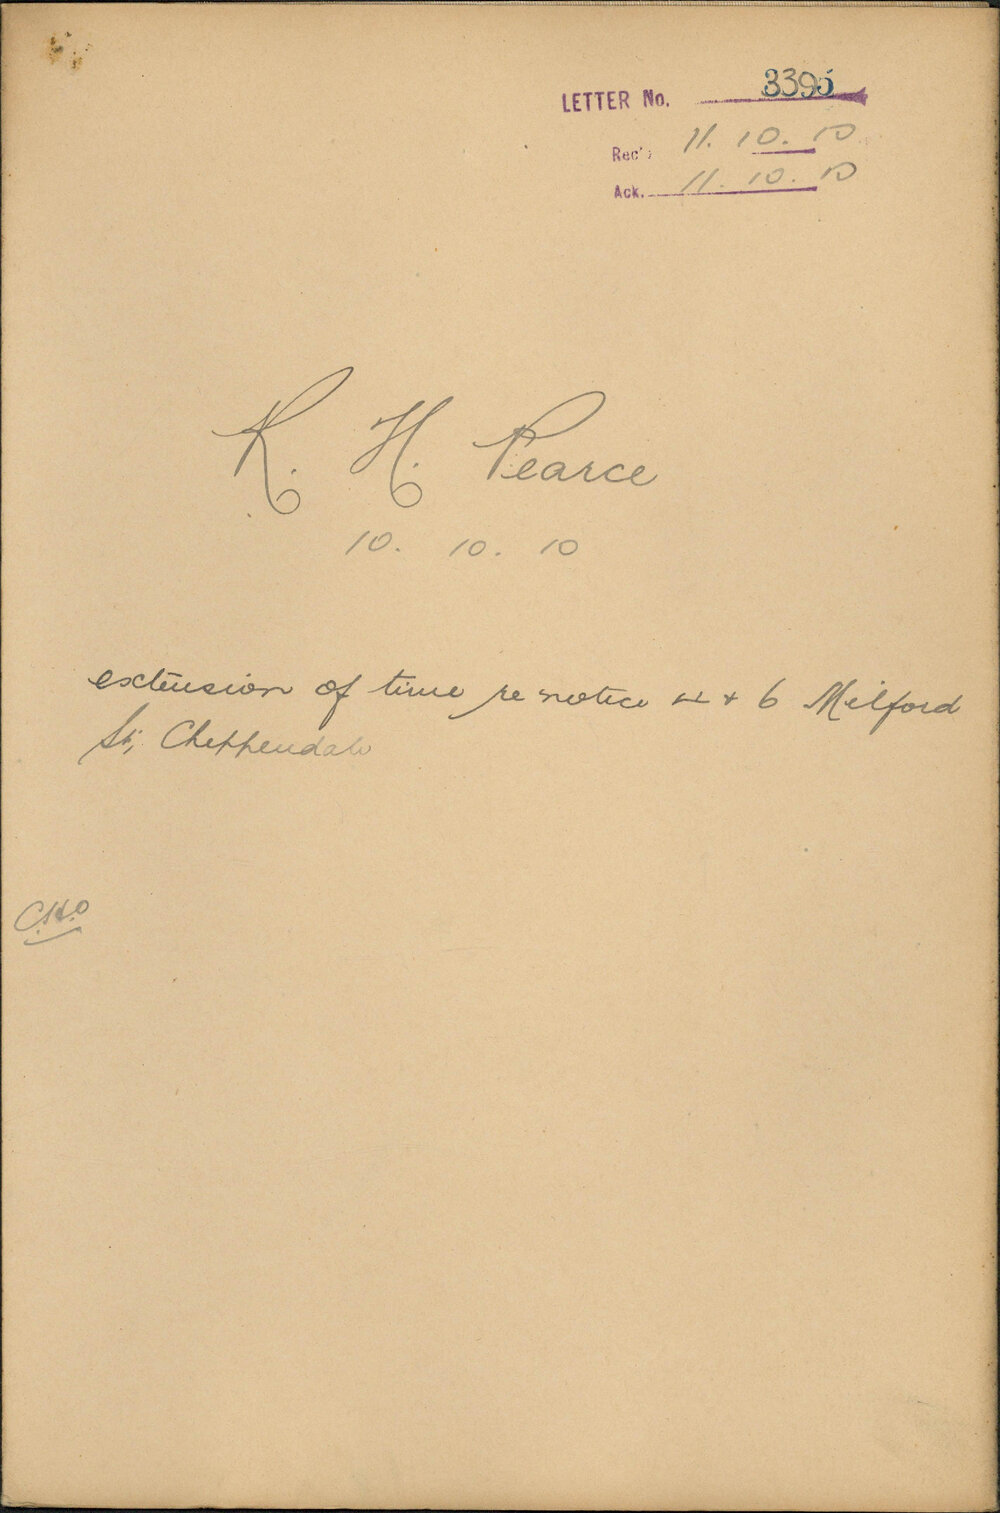 LETTER No. 3395
Rec'd 11. 10. 10
Ack. 11. 10. 10
R. H. Pearce
10. 10. 10
extension of time re notice 4 + 6 Milford
St, Cheppendale
C.H.O